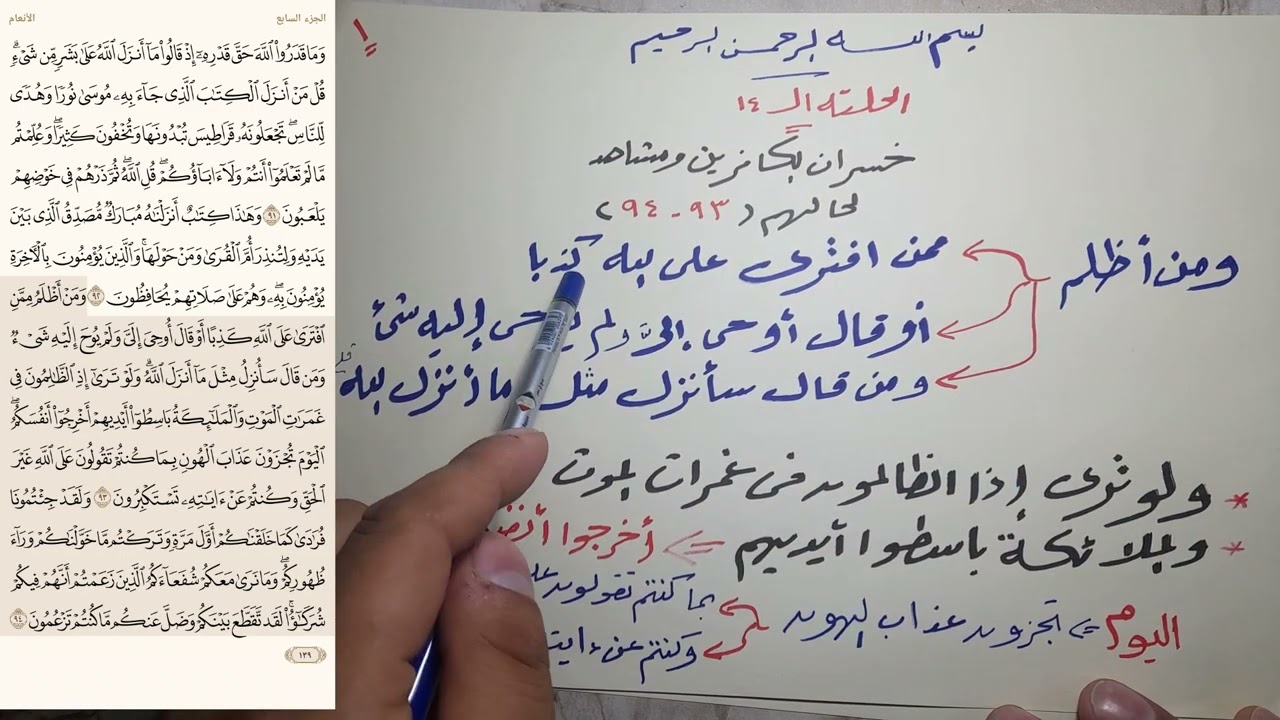 الجزء السابع
الأنعام
وَمَا قَدَرُوا۟ ٱللَّهَ حَقَّ قَدْرِهِۦٓ إِذْ قَالُوا۟ مَآ أَنزَلَ ٱللَّهُ عَلَىٰ بَشَرٍ مِّن شَىْءٍ ۗ
قُلْ مَنْ أَنزَلَ ٱلْكِتَٰبَ ٱلَّذِى جَآءَ بِهِۦ مُوسَىٰ نُورًا وَهُدًى
لِّلنَّاسِ ۖ تَجْعَلُونَهُۥ قَرَاطِيسَ تُبْدُونَهَا وَتُخْفُونَ كَثِيرًا ۖ وَعُلِّمْتُم
مَّا لَمْ تَعْلَمُوٓا۟ أَنتُمْ وَلَآ ءَابَآؤُكُمْ ۖ قُلِ ٱللَّهُ ۖ ثُمَّ ذَرْهُمْ فِى خَوْضِهِمْ
يَلْعَبُونَ ٩١ وَهَٰذَا كِتَٰبٌ أَنزَلْنَٰهُ مُبَارَكٌ مُّصَدِّقُ ٱلَّذِى بَيْنَ
يَدَيْهِ وَلِتُنذِرَ أُمَّ ٱلْقُرَىٰ وَمَنْ حَوْلَهَا ۚ وَٱلَّذِينَ يُؤْمِنُونَ بِٱلْءَاخِرَةِ
يُؤْمِنُونَ بِهِۦ ۖ وَهُمْ عَلَىٰ صَلَاتِهِمْ يُحَافِظُونَ ٩٢ وَمَنْ أَظْلَمُ مِمَّنِ
ٱفْتَرَىٰ عَلَى ٱللَّهِ كَذِبًا أَوْ قَالَ أُوحِىَ إِلَىَّ وَلَمْ يُوحَ إِلَيْهِ شَىْءٌ
وَمَن قَالَ سَأُنزِلُ مِثْلَ مَآ أَنزَلَ ٱللَّهُ ۗ وَلَوْ تَرَىٰٓ إِذِ ٱلظَّٰلِمُونَ فِى
غَمَرَٰتِ ٱلْمَوْتِ وَٱلْمَلَٰٓئِكَةُ بَاسِطُوٓا۟ أَيْدِيهِمْ أَخْرِجُوٓا۟ أَنفُسَكُمُ ۖ
ٱلْيَوْمَ تُجْزَوْنَ عَذَابَ ٱلْهُونِ بِمَا كُنتُمْ تَقُولُونَ عَلَى ٱللَّهِ غَيْرَ
ٱلْحَقِّ وَكُنتُمْ عَنْ ءَايَٰتِهِۦ تَسْتَكْبِرُونَ ٩٣ وَلَقَدْ جِئْتُمُونَا
فُرَٰدَىٰ كَمَا خَلَقْنَٰكُمْ أَوَّلَ مَرَّةٍ وَتَرَكْتُم مَّا خَوَّلْنَٰكُمْ وَرَآءَ
ظُهُورِكُمْ ۖ وَمَا نَرَىٰ مَعَكُمْ شُفَعَآءَكُمُ ٱلَّذِينَ زَعَمْتُمْ أَنَّهُمْ فِيكُمْ
شُرَكَٰٓؤُا۟ ۚ لَقَد تَّقَطَّعَ بَيْنَكُمْ وَضَلَّ عَنكُم مَّا كُنتُمْ تَزْعُمُونَ ٩٤
١٣٩
١
بسم الله الرحمن الرحيم
الحلقة الـ ١٤
خسران الكافرين ومشاهد
لحالهم (٩٣ - ٩٤)
ومن أظلم
ممن افترى على الله كذبا
أو قال أوحى إلىَّ ولم إليه شئ
ومن قال سأنزل مثل ما أنزل الله
* ولو ترى إذا الظالمون فى غمرات الموت
* والملائكة باسطوا أيديهم => أخرجوا
اليوم => تجزون عذاب الهون
بما كنتم تقولون
وكنتم عن